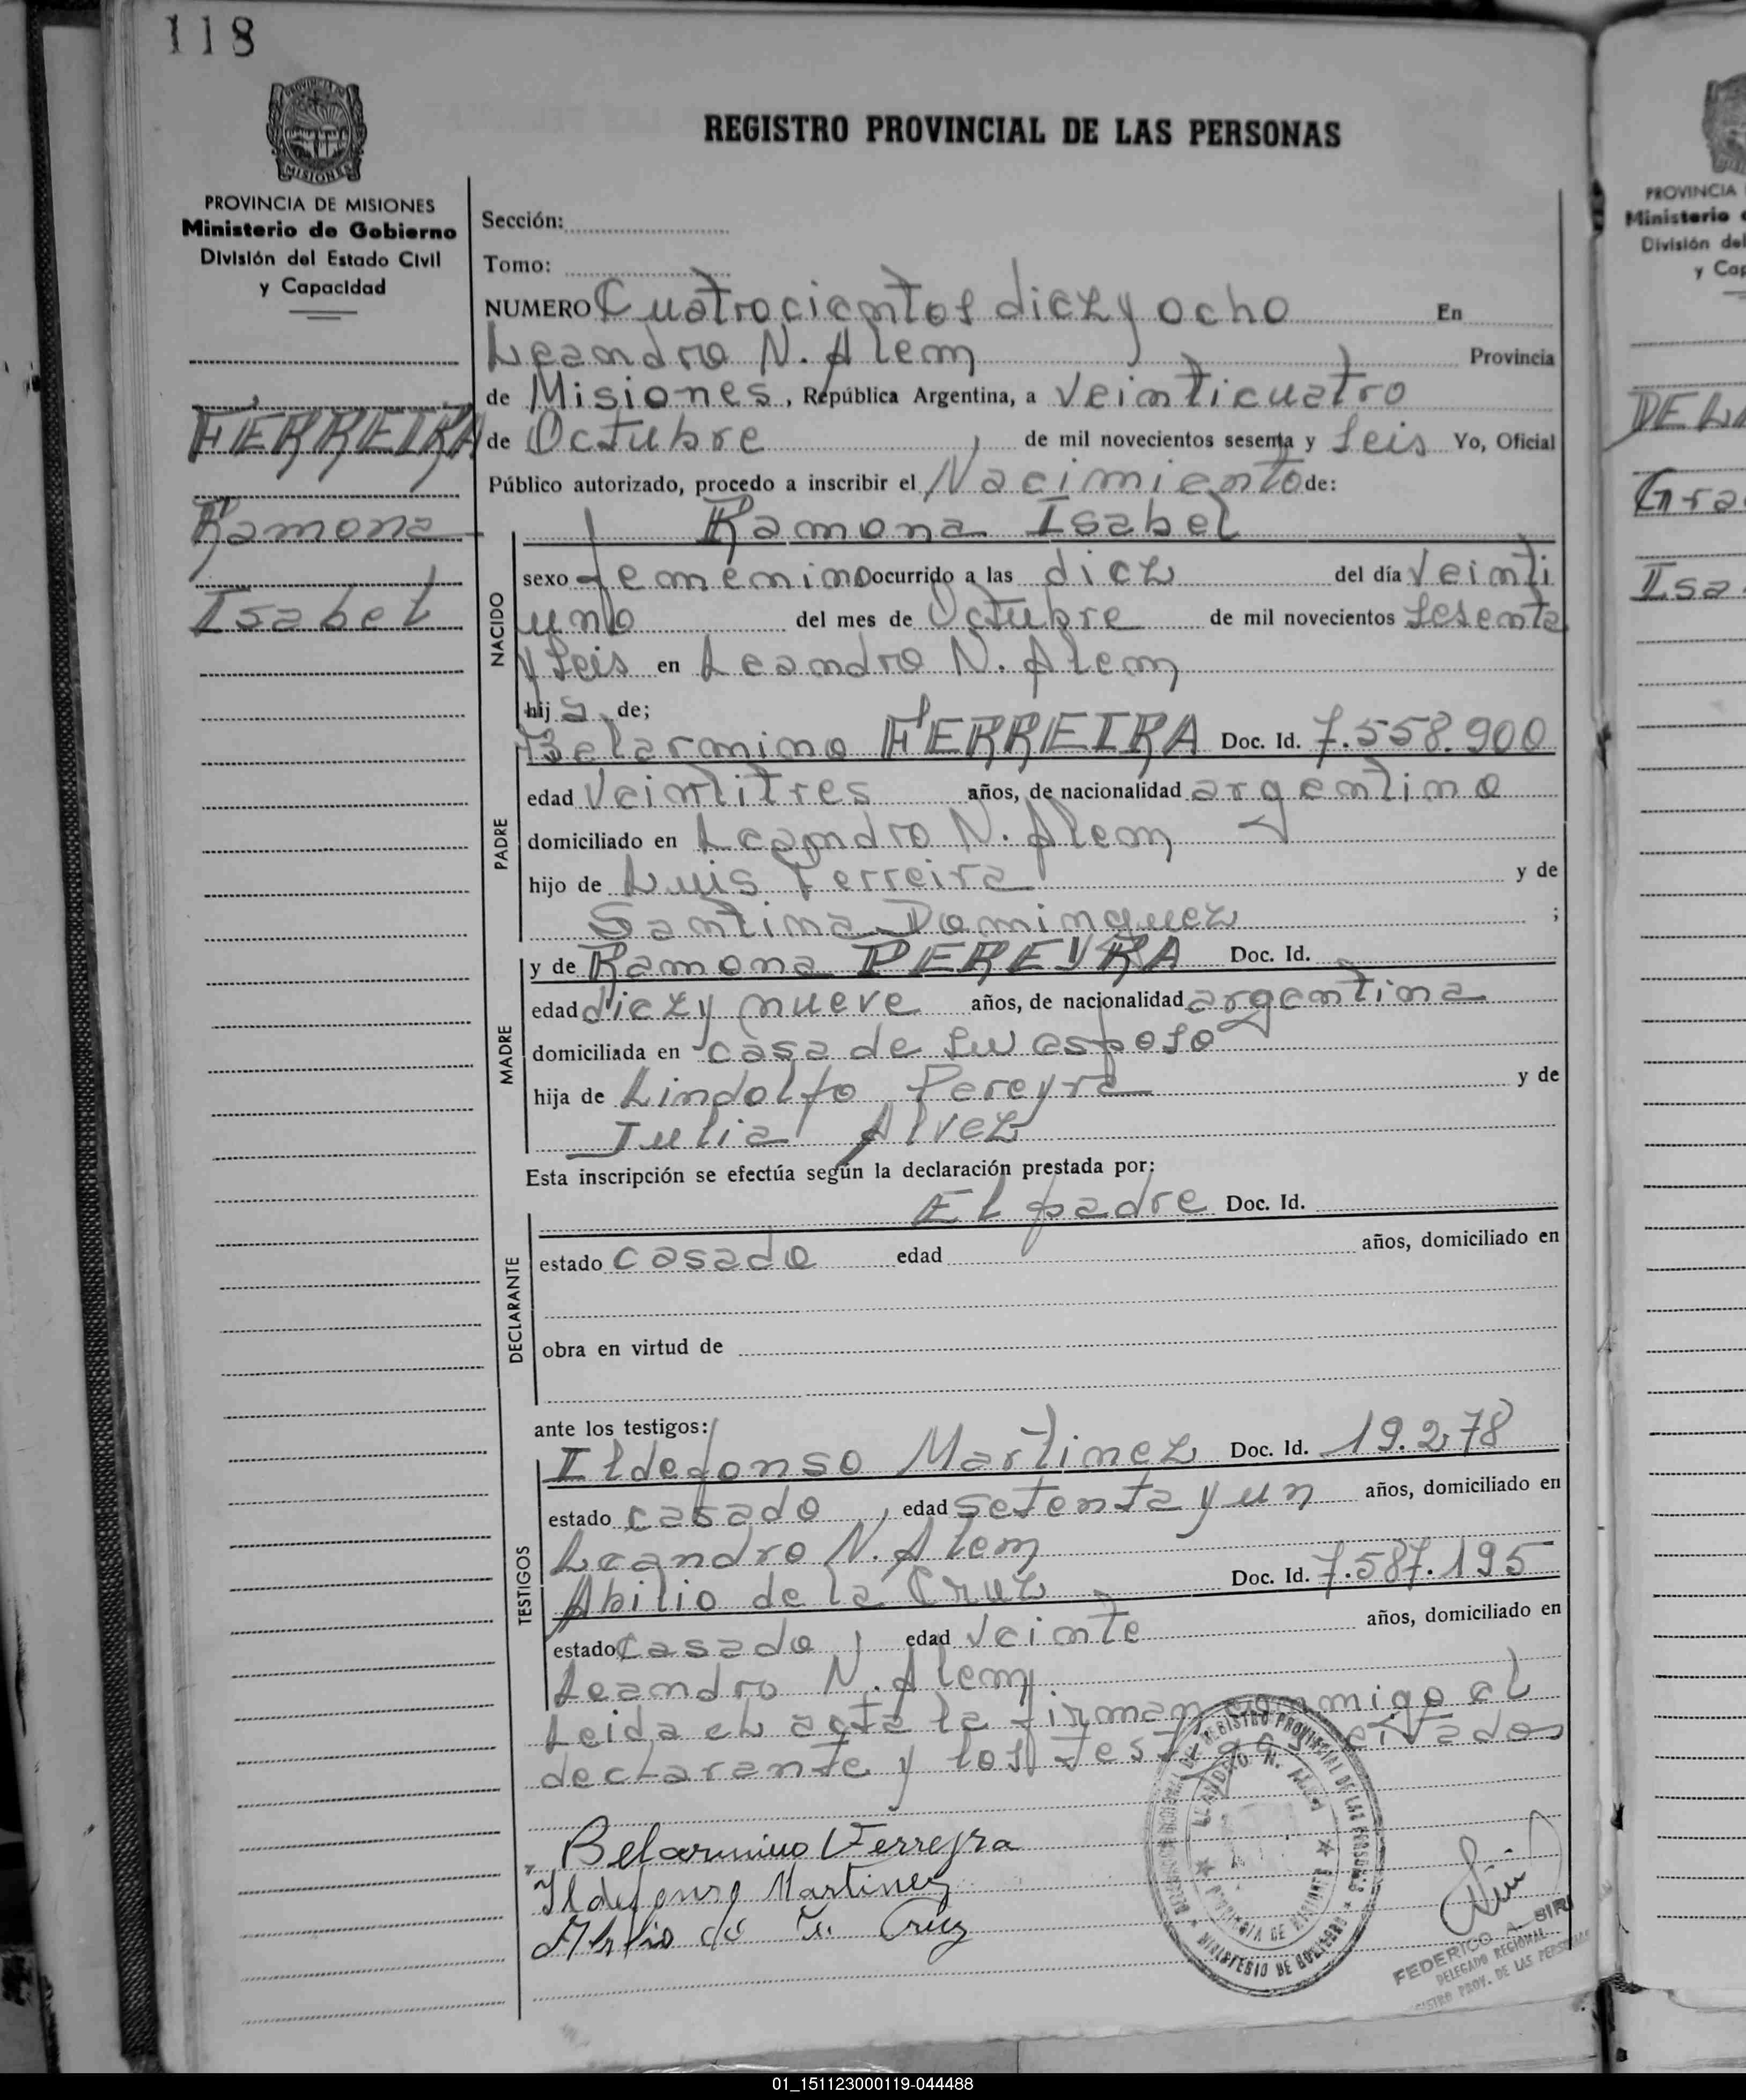 118
MISIONES
PROVINCIA DE MISIONES
Ministerio de Gobierno
División del Estado Civil
y Capacidad
FERREIRA
Ramona
Isabel
REGISTRO PROVINCIAL DE LAS PERSONAS
Sección:
Tomo:
NUMERO Cuatrocientos diez y ocho En
Leandro N. Alem Provincia
de Misiones, República Argentina, a veinticuatro
de Octubre de mil novecientos sesenta y seis Yo, Oficial
Público autorizado, procedo a inscribir el Nacimiento de:
Ramona Isabel
NACIDO
sexo femenino ocurrido a las diez del día veinti
uno del mes de Octubre de mil novecientos sesenta
y seis en Leandro N. Alem
hija de;
Belarmino FERREIRA Doc. Id. 7.558.900
PADRE
edad veintitres años, de nacionalidad argentino
domiciliado en Leandro N. Alem
hijo de Luis Ferreira y de
Santina Dominguez ;
y de Ramona PEREYRA Doc. Id.
MADRE
edad diez y nueve años, de nacionalidad argentina
domiciliada en casa de su esposo
hija de Lindolfo Pereyra y de
Julia Alvez
Esta inscripción se efectúa según la declaración prestada por:
El padre Doc. Id.
DECLARANTE
estado casado edad años, domiciliado en
obra en virtud de
ante los testigos:
Ildefonso Martinez Doc. Id. 19.278
TESTIGOS
estado casado, edad setenta y un años, domiciliado en
Leandro N. Alem
Abilio de la Cruz Doc. Id. 7.587.195
estado casado, edad veinte años, domiciliado en
Leandro N. Alem
Leida el acta la firman conmigo el
declarante y los testigos citados
Belarmino Ferreyra
Ildefonso Martinez
Abilio de la Cruz
REGISTRO PROVINCIAL DE LAS PERSONAS
MINISTERIO DE GOBIERNO
LEANDRO N. ALEM
PROVINCIA DE MISIONES
FEDERICO A.
DELEGADO REGIONAL
PROV. DE LAS
PROVINCIA
Ministerio
División del
y Cap
DE L
Gra
Isa
01_151123000119-044488